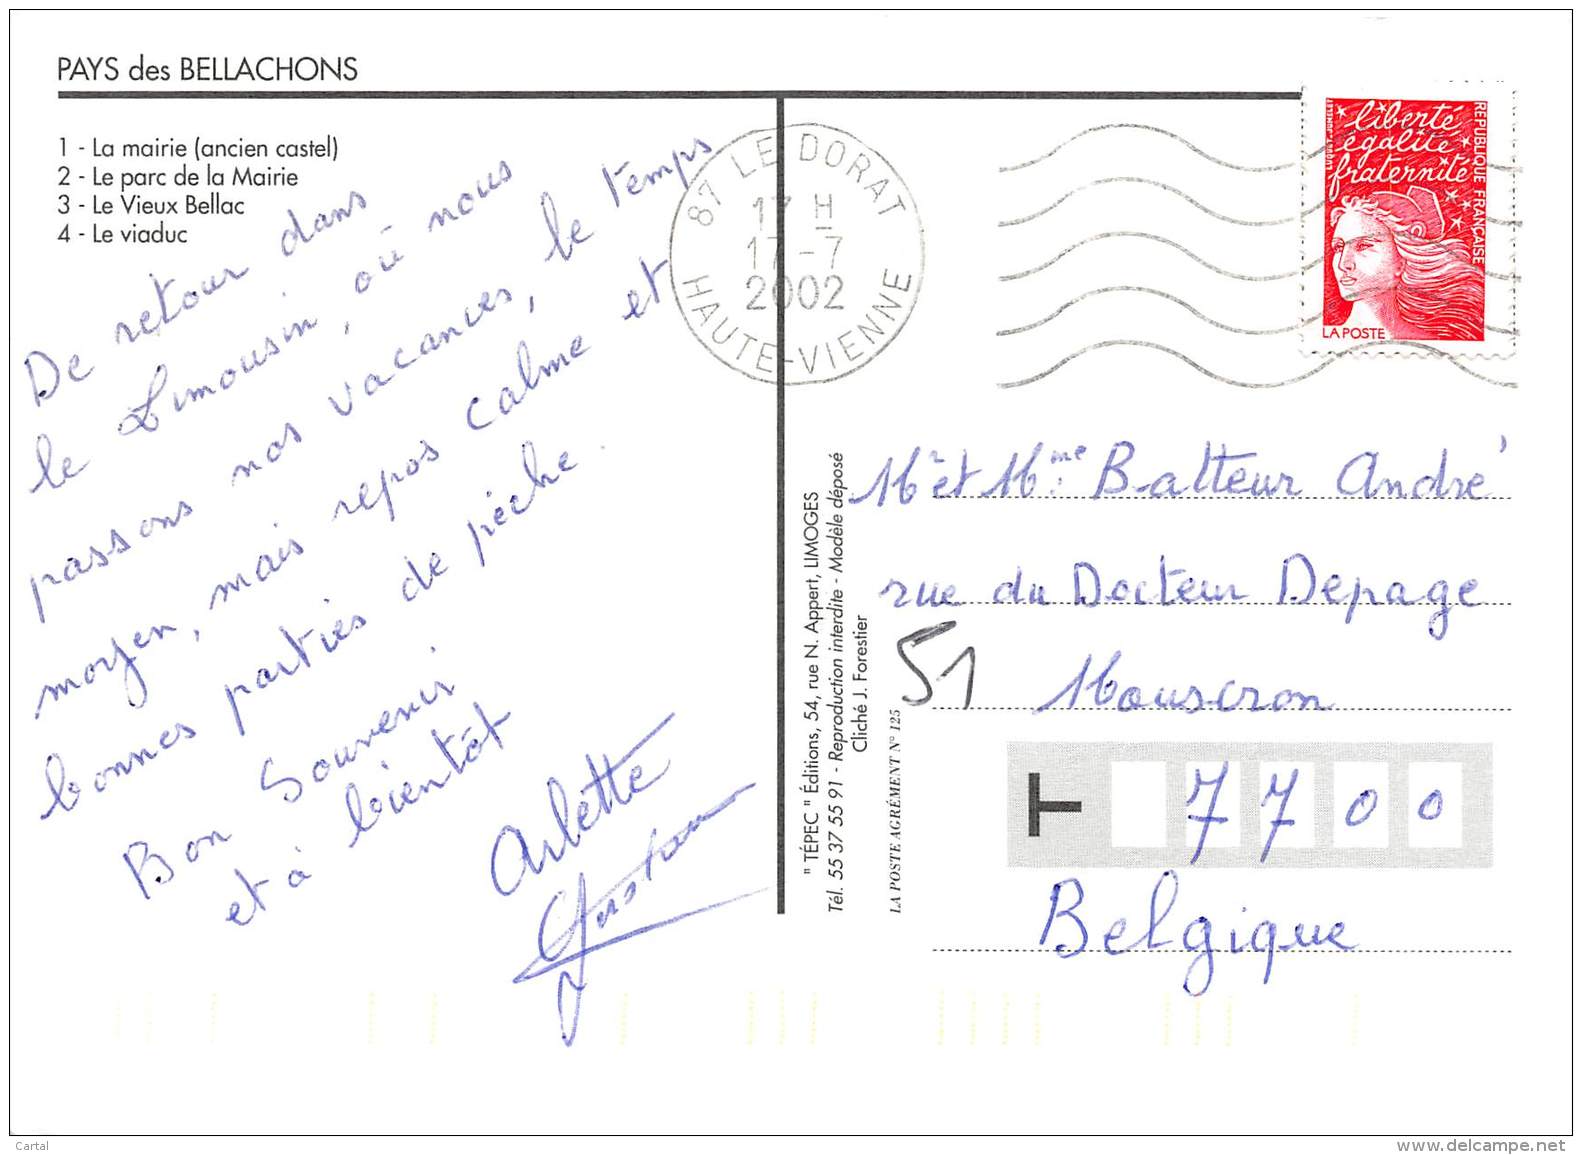 PAYS des BELLACHONS
1 - La mairie (ancien castel)
2 - Le parc de la Mairie
3 - Le Vieux Bellac
4 - Le viaduc
De retour dans
le Limousin, où nous
passons nos vacances, le temps
moyen, mais repos calme et
bonnes parties de pêche.
Bon Souvenir
et à bientôt
Arlette
Gustave
87 LE DORAT
17 H
17-7
2002
HAUTE-VIENNE
liberté
égalité
fraternité
RÉPUBLIQUE FRANÇAISE
LA POSTE
" TÉPEC " Éditions, 54, rue N. Appert, LIMOGES
Tél. 55 37 55 91 - Reproduction interdite - Modèle déposé
Cliché J. Forestier
LA POSTE AGRÉMENT N° 125
Mr et Mme Batteur André
rue du Docteur Depage
51
Mouscron
T 7700
Belgique
Cartal
https://www.delcampe.net